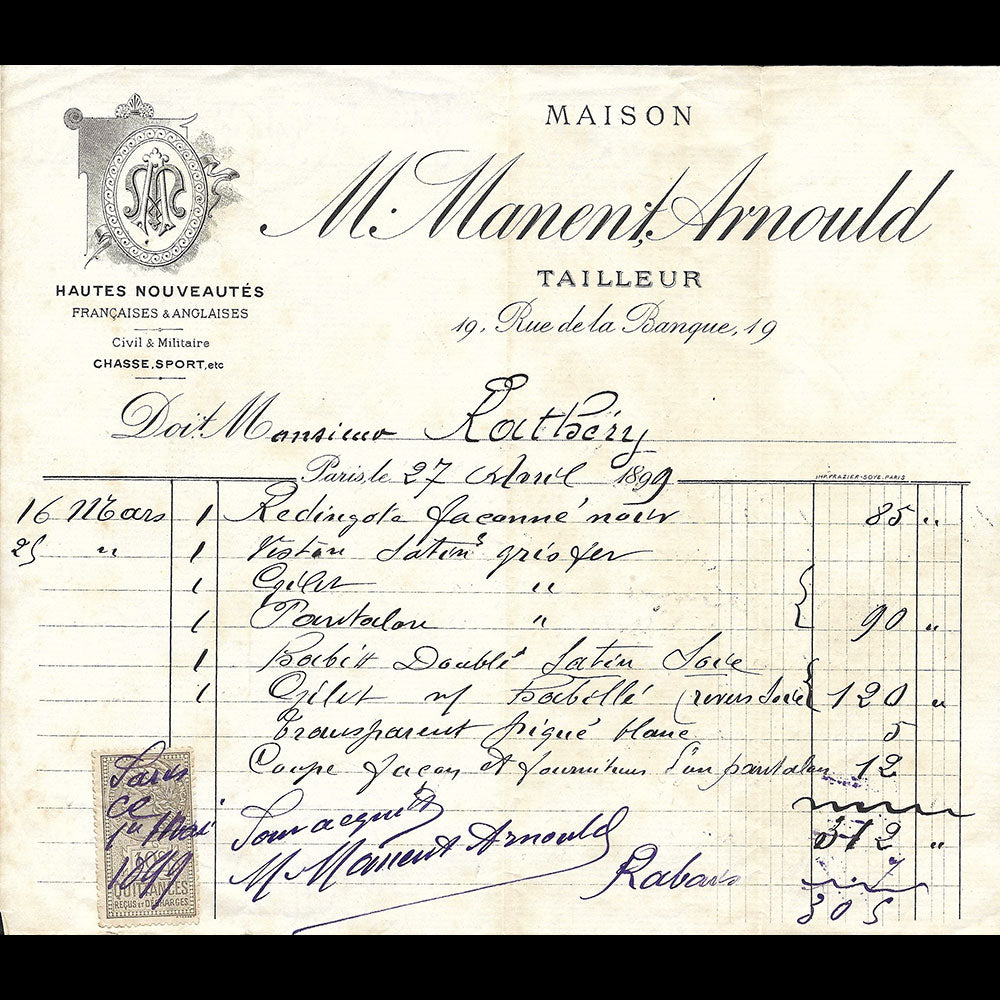 MAISON
M. Manent, Arnould
TAILLEUR
19, Rue de la Banque, 19
HAUTES NOUVEAUTÉS
FRANÇAISES & ANGLAISES
Civil & Militaire
CHASSE, SPORT, etc
Doit Monsieur Rathery
Paris, le 27 Avril 1899
IMP. FRAZIER-SOYE. PARIS
16 Mars 1 Redingote façonné noir 85 "
25 " 1 Veston Satin gris fer
1 Gilet "
1 Pantalon " 90 "
1 Habit Doublé Satin Soie
1 Gilet habillé (revers Soie 120 "
Transparent piqué blanc 5
Coupe façon et fournitures d'un pantalon 12
312 "
Pour acquit
M Manent Arnould
Rabais 7
305
Paris
ce
1er Mai
1899
QUITTANCES
REÇUS ET DÉCHARGES